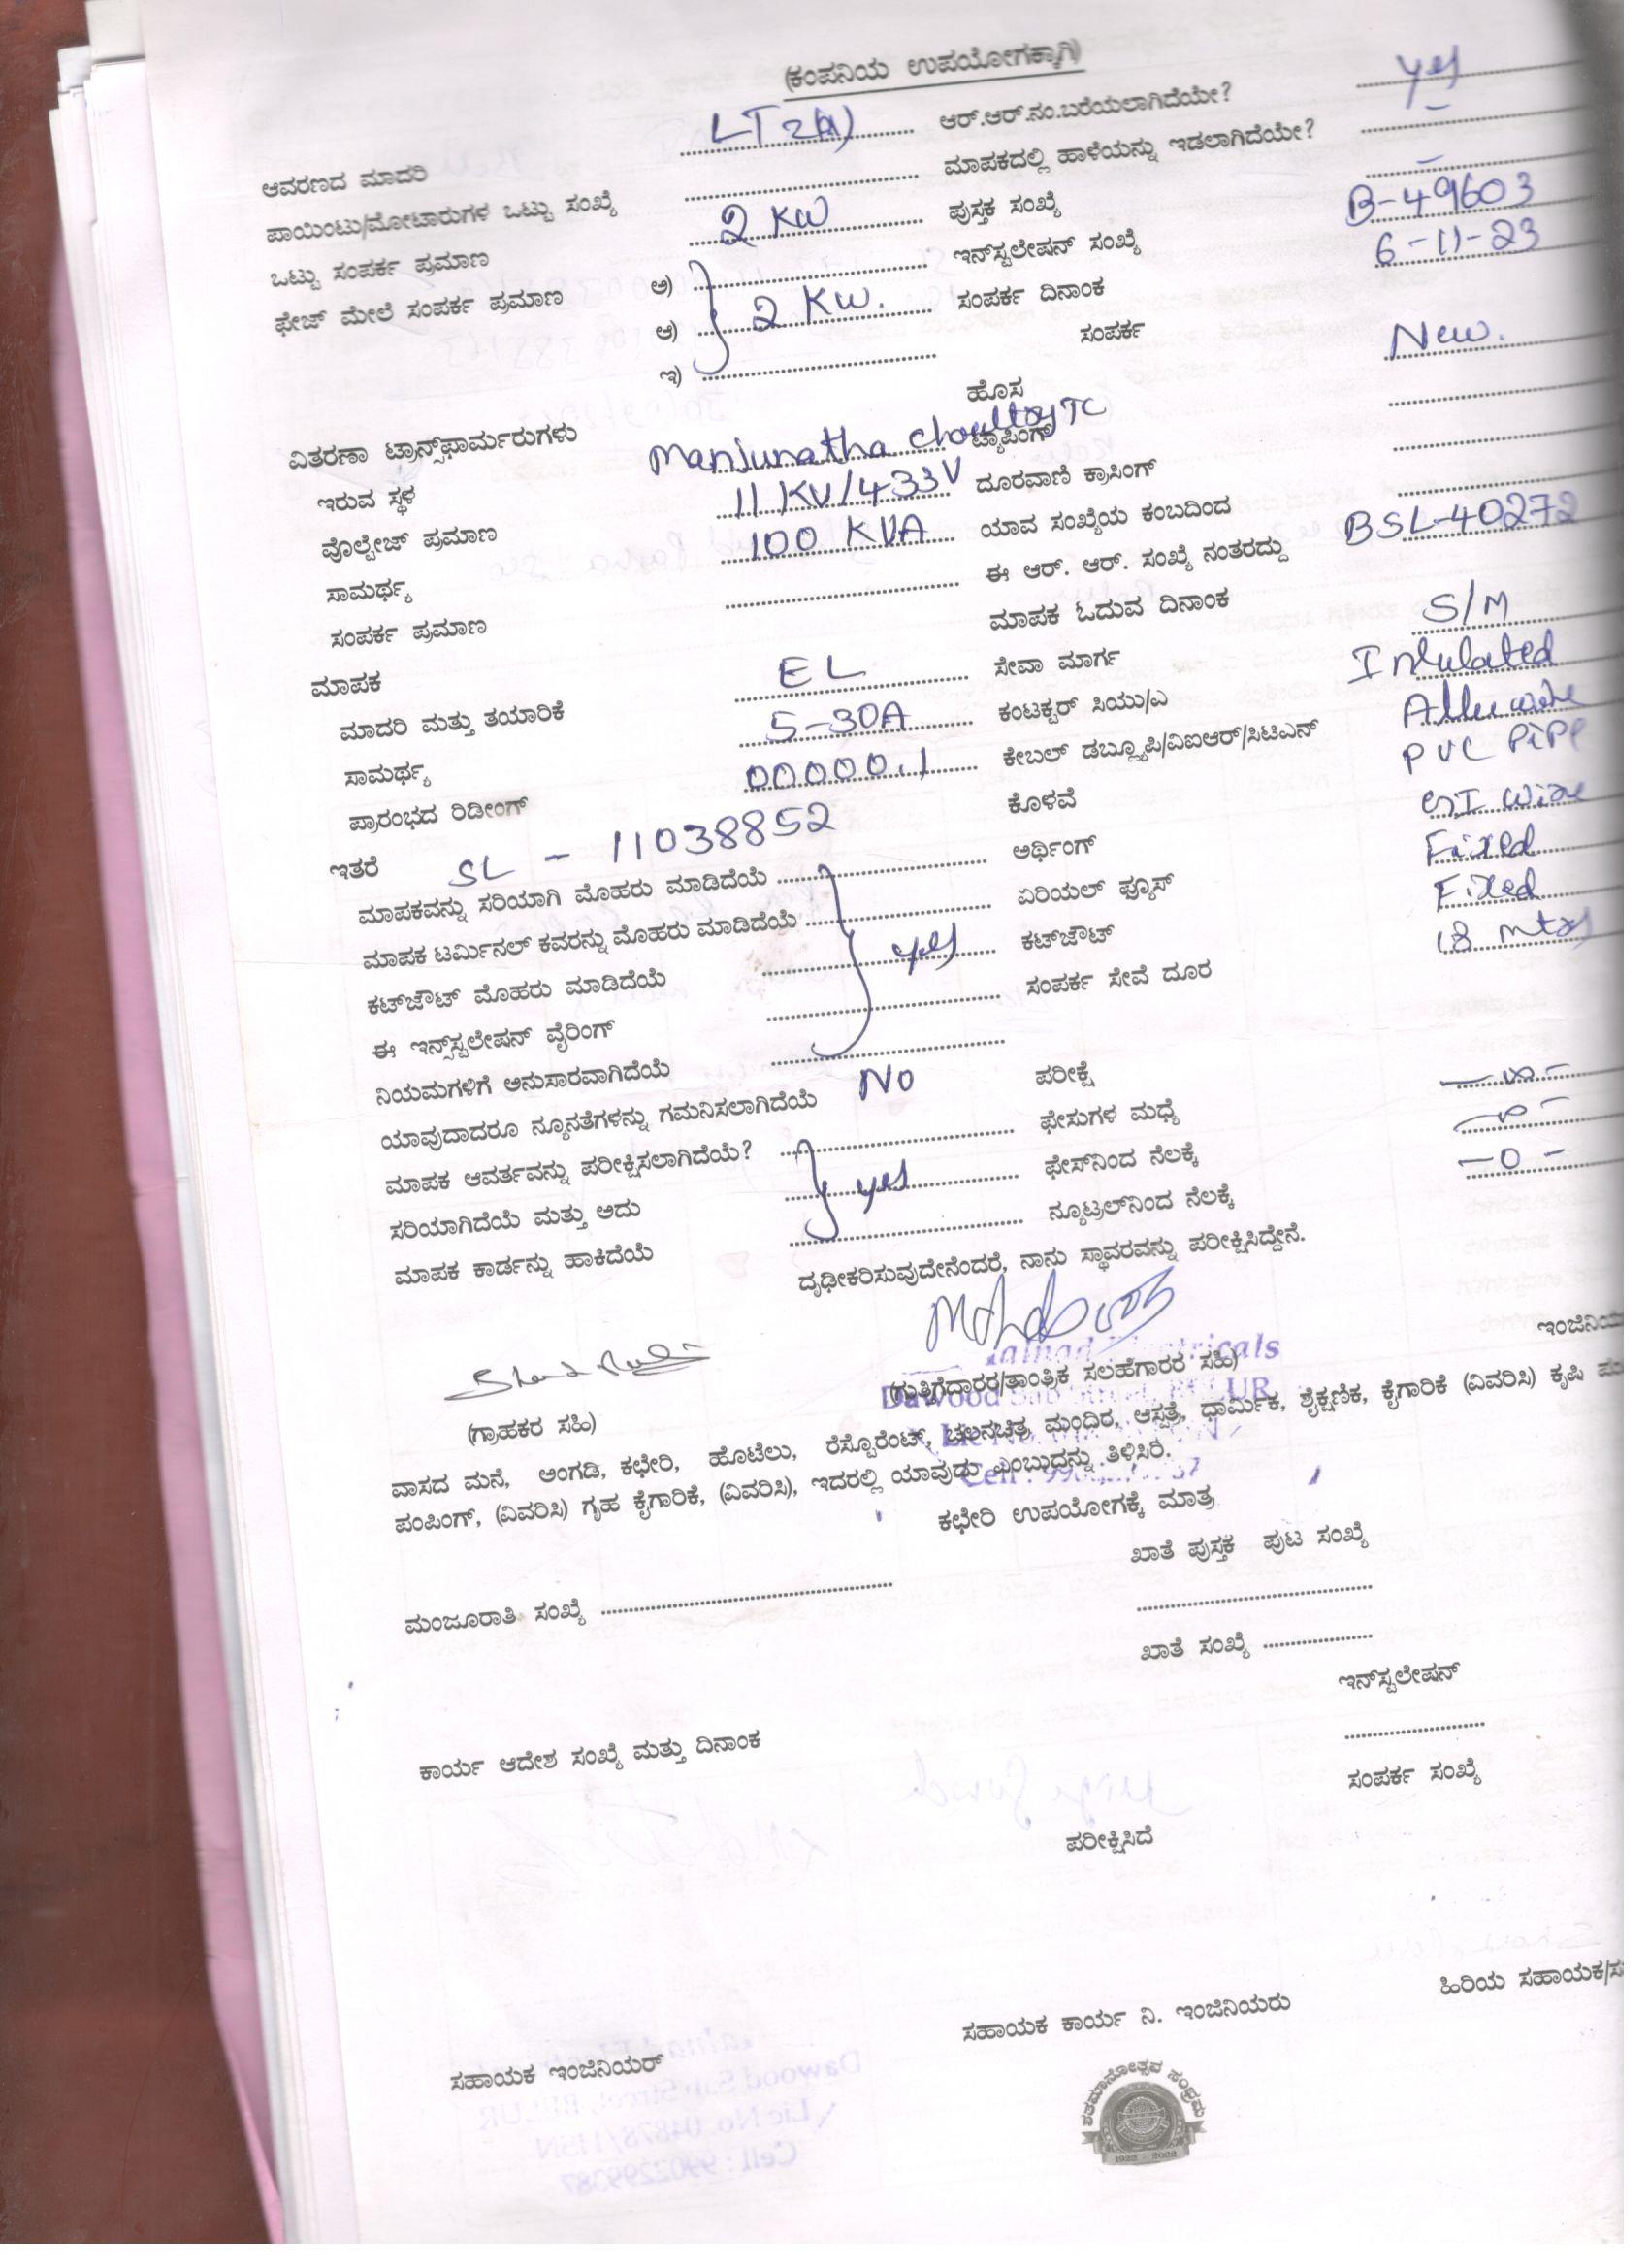 (ಕಂಪನಿಯ ಉಪಯೋಗಕ್ಕಾಗಿ)
ಆವರಣದ ಮಾದರಿ LT 2(a) ಆರ್.ಆರ್.ನಂ.ಬರೆಯಲಾಗಿದೆಯೇ? yes
ಪಾಯಿಂಟು/ಮೋಟಾರುಗಳ ಒಟ್ಟು ಸಂಖ್ಯೆ ಮಾಪಕದಲ್ಲಿ ಹಾಳೆಯನ್ನು ಇಡಲಾಗಿದೆಯೇ? –
ಒಟ್ಟು ಸಂಪರ್ಕ ಪ್ರಮಾಣ 2 KW ಪುಸ್ತಕ ಸಂಖ್ಯೆ –
ಫೇಜ್ ಮೇಲೆ ಸಂಪರ್ಕ ಪ್ರಮಾಣ ಅ) ಇನ್‌ಸ್ಟಲೇಷನ್ ಸಂಖ್ಯೆ B-49603
ಆ) 2 KW. ಸಂಪರ್ಕ ದಿನಾಂಕ 6-11-23
ಇ) ಸಂಪರ್ಕ
ಹೊಸ New.
ವಿತರಣಾ ಟ್ರಾನ್ಸ್‌ಫಾರ್ಮರುಗಳು ಟ್ಯಾಪಿಂಗ್
ಇರುವ ಸ್ಥಳ Manjunatha choultry TC ದೂರವಾಣಿ ಕ್ರಾಸಿಂಗ್
ವೊಲ್ಟೇಜ್ ಪ್ರಮಾಣ 11 KV/433V ಯಾವ ಸಂಖ್ಯೆಯ ಕಂಬದಿಂದ
ಸಾಮರ್ಥ್ಯ 100 KVA ಈ ಆರ್. ಆರ್. ಸಂಖ್ಯೆ ನಂತರದ್ದು BSL-40272
ಸಂಪರ್ಕ ಪ್ರಮಾಣ ಮಾಪಕ ಓದುವ ದಿನಾಂಕ
ಮಾಪಕ ಸೇವಾ ಮಾರ್ಗ S/M
ಮಾದರಿ ಮತ್ತು ತಯಾರಿಕೆ EL ಕಂಟಕ್ಟರ್ ಸಿಯು/ಎ Insulated
ಸಾಮರ್ಥ್ಯ 5-30A ಕೇಬಲ್ ಡಬ್ಲ್ಯೂಪಿ/ವಿಐಆರ್/ಸಿಟಿಎನ್ Allu wire
ಪ್ರಾರಂಭದ ರಿಡೀಂಗ್ 00000.1 ಕೊಳವೆ PVC PiPe
ಇತರೆ SL - 11038852 ಅರ್ಥಿಂಗ್ GI Wire
ಮಾಪಕವನ್ನು ಸರಿಯಾಗಿ ಮೊಹರು ಮಾಡಿದೆಯೆ ಏರಿಯಲ್ ಫ್ಯೂಸ್ Fixed
ಮಾಪಕ ಟರ್ಮಿನಲ್ ಕವರನ್ನು ಮೊಹರು ಮಾಡಿದೆಯೆ yes ಕಟ್‌ಜೌಟ್ Fixed
ಕಟ್‌ಜೌಟ್ ಮೊಹರು ಮಾಡಿದೆಯೆ ಸಂಪರ್ಕ ಸೇವೆ ದೂರ 18 mtrs
ಈ ಇನ್ಸ್‌ಸ್ಟಲೇಷನ್ ವೈರಿಂಗ್
ನಿಯಮಗಳಿಗೆ ಅನುಸಾರವಾಗಿದೆಯೆ
ಯಾವುದಾದರೂ ನ್ಯೂನತೆಗಳನ್ನು ಗಮನಿಸಲಾಗಿದೆಯೆ No ಪರೀಕ್ಷೆ
ಮಾಪಕ ಆವರ್ತವನ್ನು ಪರೀಕ್ಷಿಸಲಾಗಿದೆಯೆ? ಫೇಸುಗಳ ಮಧ್ಯೆ
ಸರಿಯಾಗಿದೆಯೆ ಮತ್ತು ಅದು yes ಫೇಸ್‌ನಿಂದ ನೆಲಕ್ಕೆ
ಮಾಪಕ ಕಾರ್ಡನ್ನು ಹಾಕಿದೆಯೆ ನ್ಯೂಟ್ರಲ್‌ನಿಂದ ನೆಲಕ್ಕೆ –0–
ದೃಢೀಕರಿಸುವುದೇನೆಂದರೆ, ನಾನು ಸ್ಥಾವರವನ್ನು ಪರೀಕ್ಷಿಸಿದ್ದೇನೆ.
(ಗ್ರಾಹಕರ ಸಹಿ) (ಗುತ್ತಿಗೆದಾರರ/ತಾಂತ್ರಿಕ ಸಲಹೆಗಾರರ ಸಹಿ)
ವಾಸದ ಮನೆ, ಅಂಗಡಿ, ಕಛೇರಿ, ಹೊಟೆಲು, ರೆಸ್ಟೊರೆಂಟ್, ಚಲನಚಿತ್ರ ಮಂದಿರ, ಆಸ್ಪತ್ರೆ, ಧಾರ್ಮಿಕ, ಶೈಕ್ಷಣಿಕ, ಕೈಗಾರಿಕೆ (ವಿವರಿಸಿ) ಕೃಷಿ
ಪಂಪಿಂಗ್, (ವಿವರಿಸಿ) ಗೃಹ ಕೈಗಾರಿಕೆ, (ವಿವರಿಸಿ), ಇದರಲ್ಲಿ ಯಾವುದು ಎಂಬುದನ್ನು ತಿಳಿಸಿರಿ.
ಕಛೇರಿ ಉಪಯೋಗಕ್ಕೆ ಮಾತ್ರ
ಖಾತೆ ಪುಸ್ತಕ ಪುಟ ಸಂಖ್ಯೆ
ಮಂಜೂರಾತಿ ಸಂಖ್ಯೆ
ಖಾತೆ ಸಂಖ್ಯೆ
ಇನ್‌ಸ್ಟಲೇಷನ್
ಕಾರ್ಯ ಆದೇಶ ಸಂಖ್ಯೆ ಮತ್ತು ದಿನಾಂಕ
ಸಂಪರ್ಕ ಸಂಖ್ಯೆ
ಪರೀಕ್ಷಿಸಿದೆ
ಹಿರಿಯ ಸಹಾಯಕ/
ಸಹಾಯಕ ಕಾರ್ಯ ನಿ. ಇಂಜಿನಿಯರು
ಸಹಾಯಕ ಇಂಜಿನಿಯರ್
ಶತಮಾನೋತ್ಸವ ಸಂಭ್ರಮ
1922 - 2022